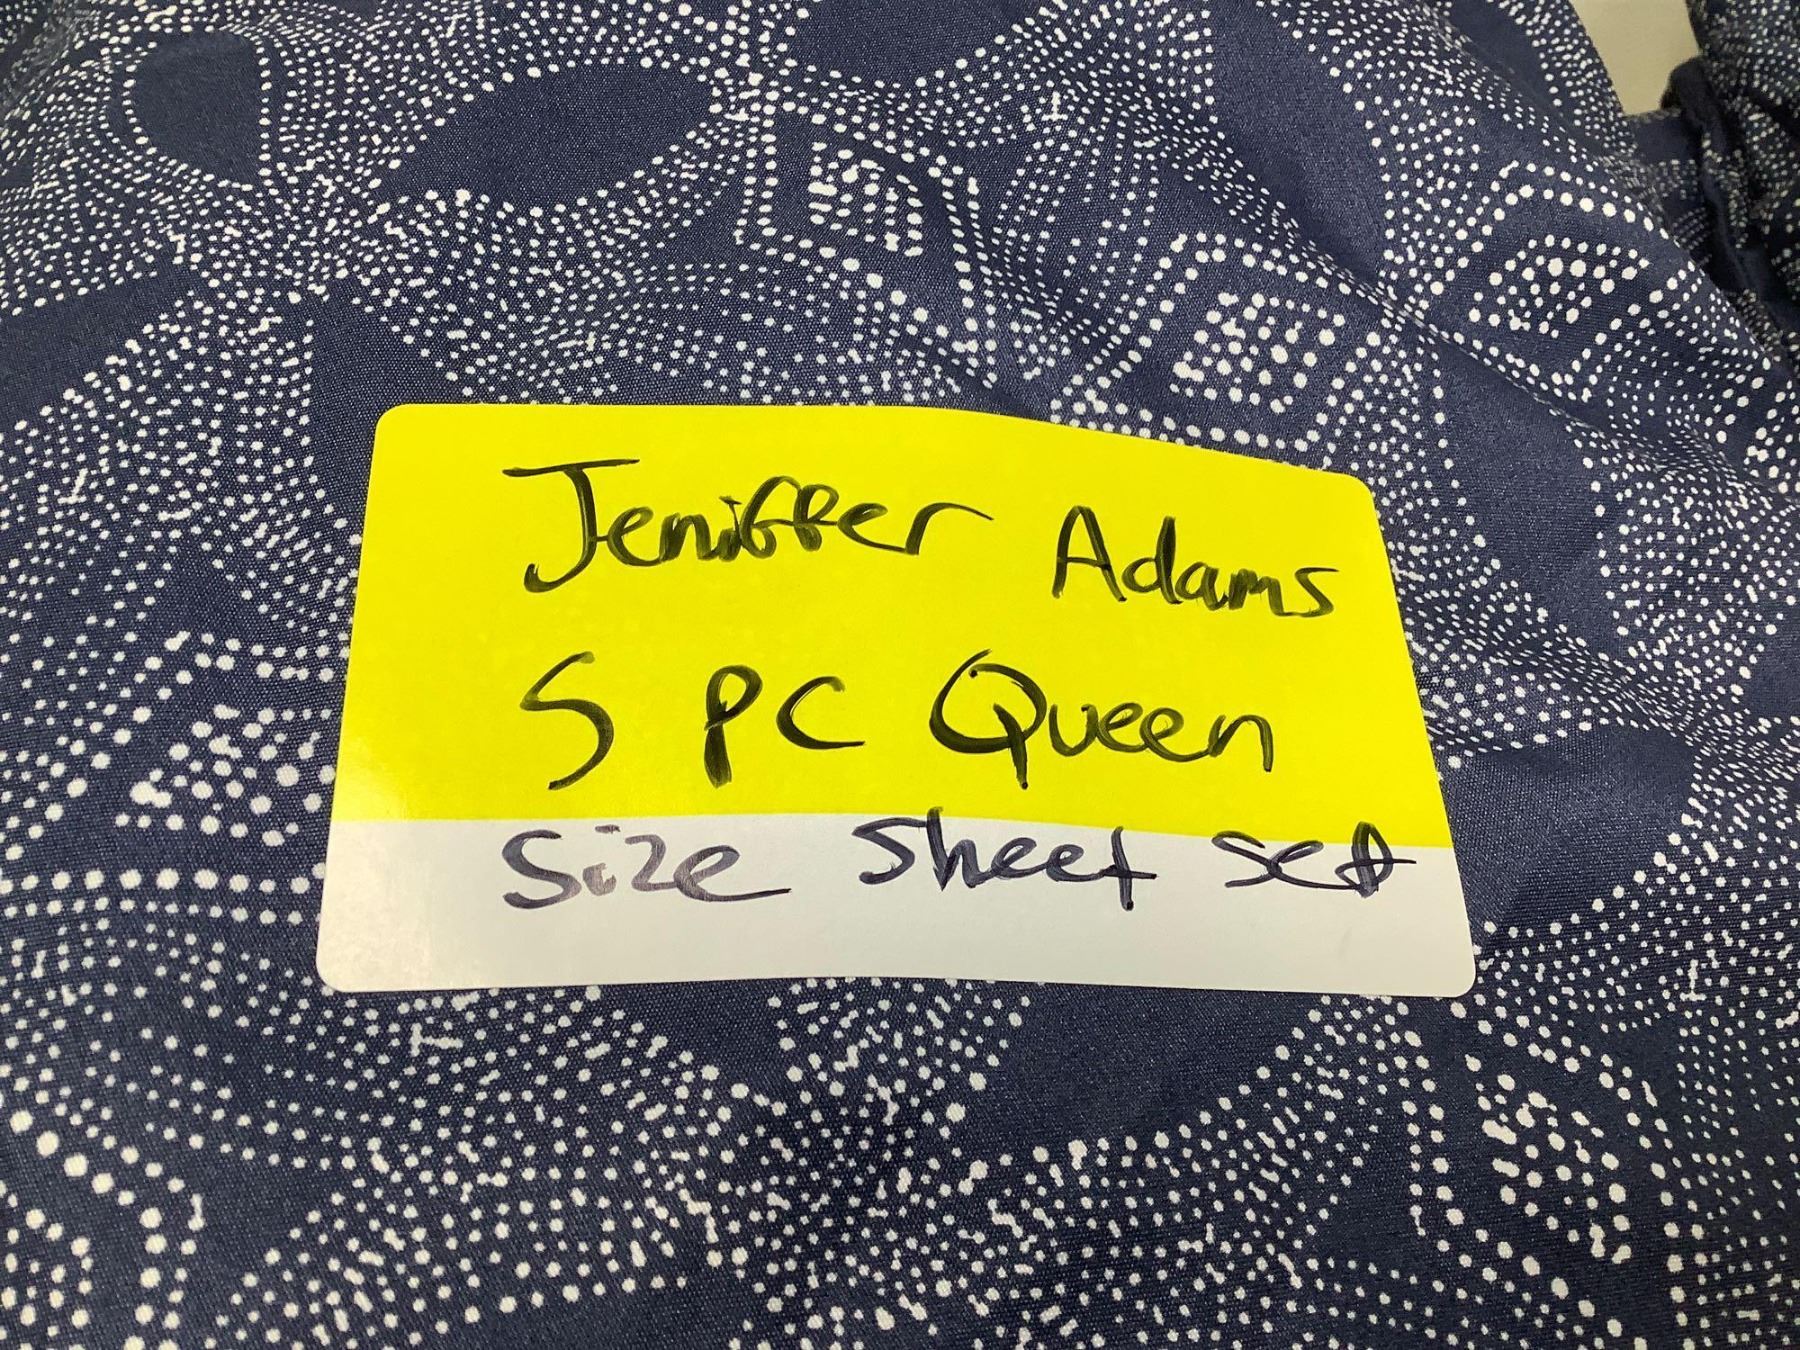 Jeniffer Adams
5 PC Queen
Size Sheet set